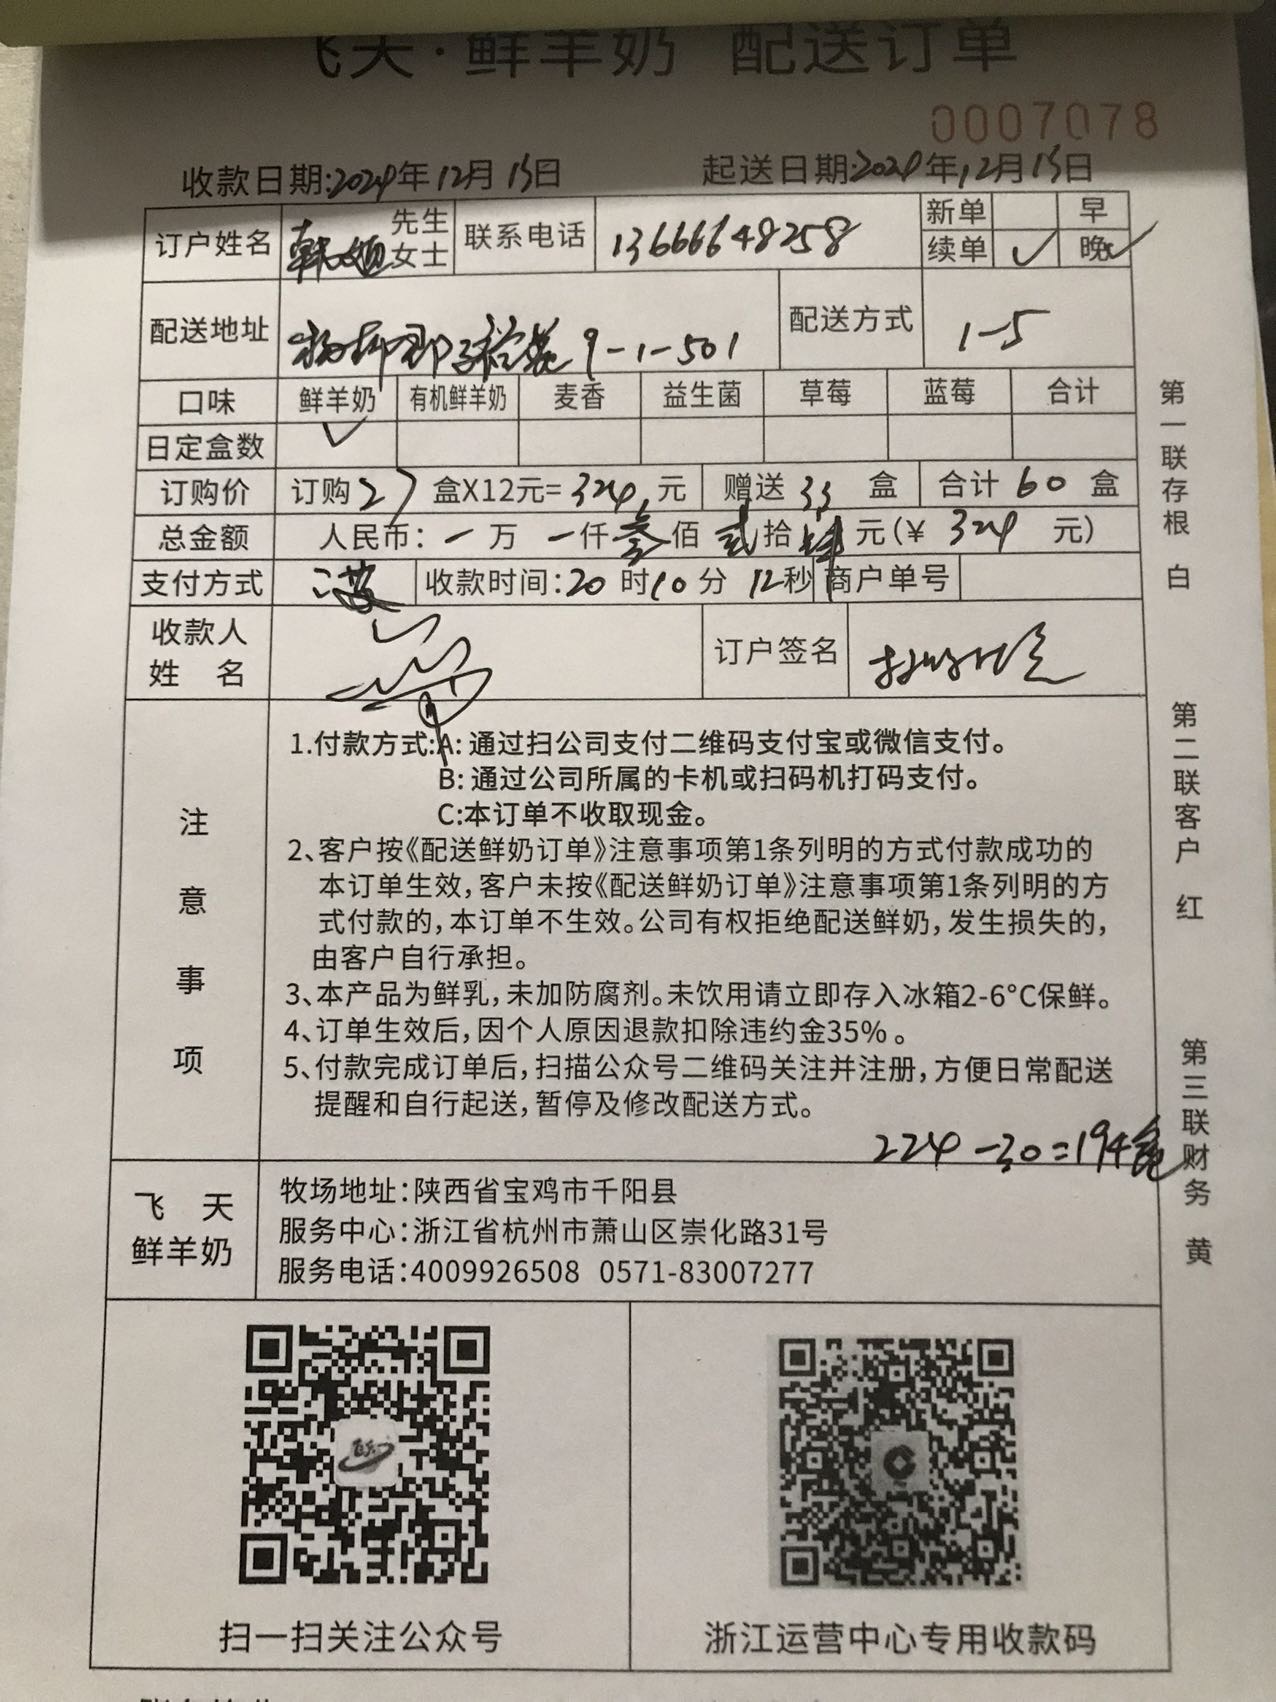 飞天·鲜羊奶 配送订单
0007078
收款日期:2024年12月15日 起送日期:2024年12月15日
订户姓名 韩 先生 女士 联系电话 13666648258 新单 早
续单 ✓ 晚 ✓
配送地址 9-1-501 配送方式 1-5
口味 鲜羊奶 有机鲜羊奶 麦香 益生菌 草莓 蓝莓 合计
日定盒数 ✓
订购价 订购27盒X12元=324元 赠送33盒 合计60盒
总金额 人民币: 一万一仟叁佰贰拾肆元(¥ 324 元)
支付方式 收款时间:20时10分12秒 商户单号
收款人姓名 订户签名
注意事项
1.付款方式:A: 通过扫公司支付二维码支付宝或微信支付。
B: 通过公司所属的卡机或扫码机打码支付。
C:本订单不收取现金。
2、客户按《配送鲜奶订单》注意事项第1条列明的方式付款成功的
本订单生效,客户未按《配送鲜奶订单》注意事项第1条列明的方
式付款的,本订单不生效。公司有权拒绝配送鲜奶,发生损失的,
由客户自行承担。
3、本产品为鲜乳,未加防腐剂。未饮用请立即存入冰箱2-6°C保鲜。
4、订单生效后,因个人原因退款扣除违约金35%。
5、付款完成订单后,扫描公众号二维码关注并注册,方便日常配送
提醒和自行起送,暂停及修改配送方式。
224-30=194
飞天鲜羊奶
牧场地址:陕西省宝鸡市千阳县
服务中心:浙江省杭州市萧山区崇化路31号
服务电话:4009926508 0571-83007277
扫一扫关注公众号 浙江运营中心专用收款码
第一联存根 白
第二联客户 红
第三联财务 黄